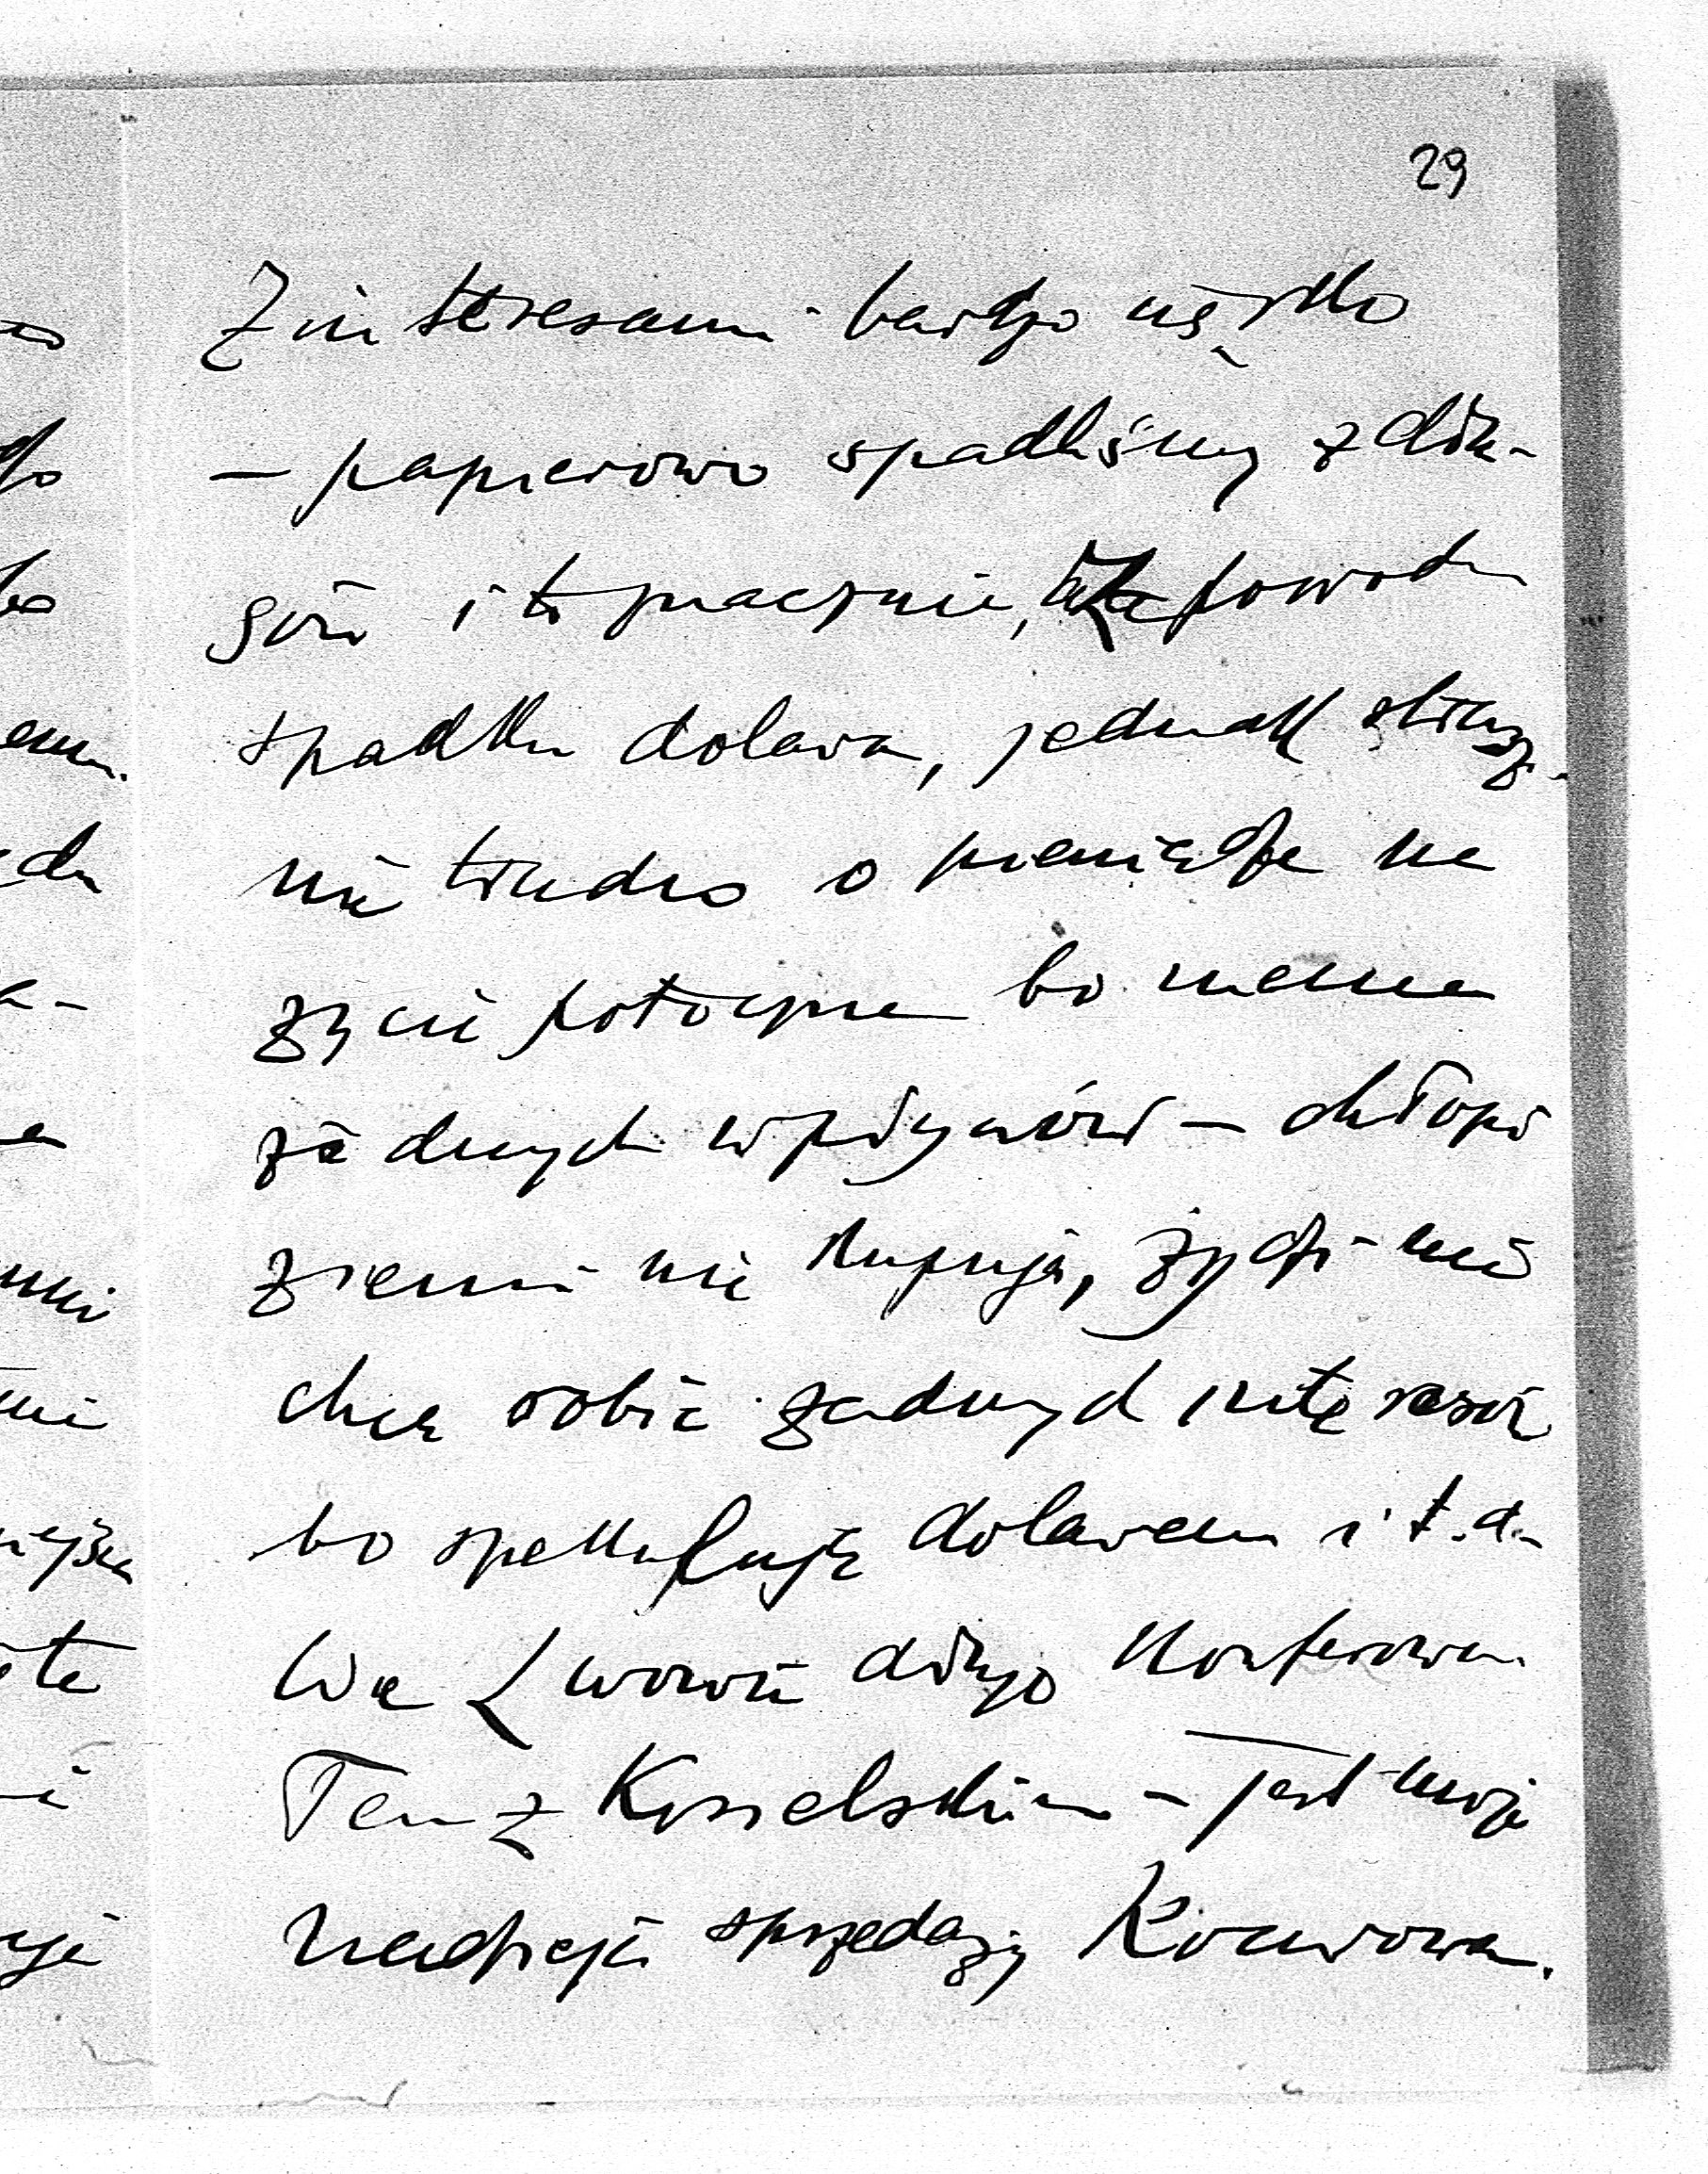 29
Z interesami bardzo ciężko
— papierowo spadliśmy z dłu-
gów i to znacznie, z powodu
spadku dolara, jednak strasz-
nie trudno o pieniądze na
życie potoczne bo niema
żadnych wpływów — chłopi
ziemi nie kupują, żydzi nie
chcą robić żadnych interesów
bo spekulują dolarem i t.d.
We Lwowie dużo konferowa-
łem z Kosielskim — jest moje
nadzieja sprzedaży